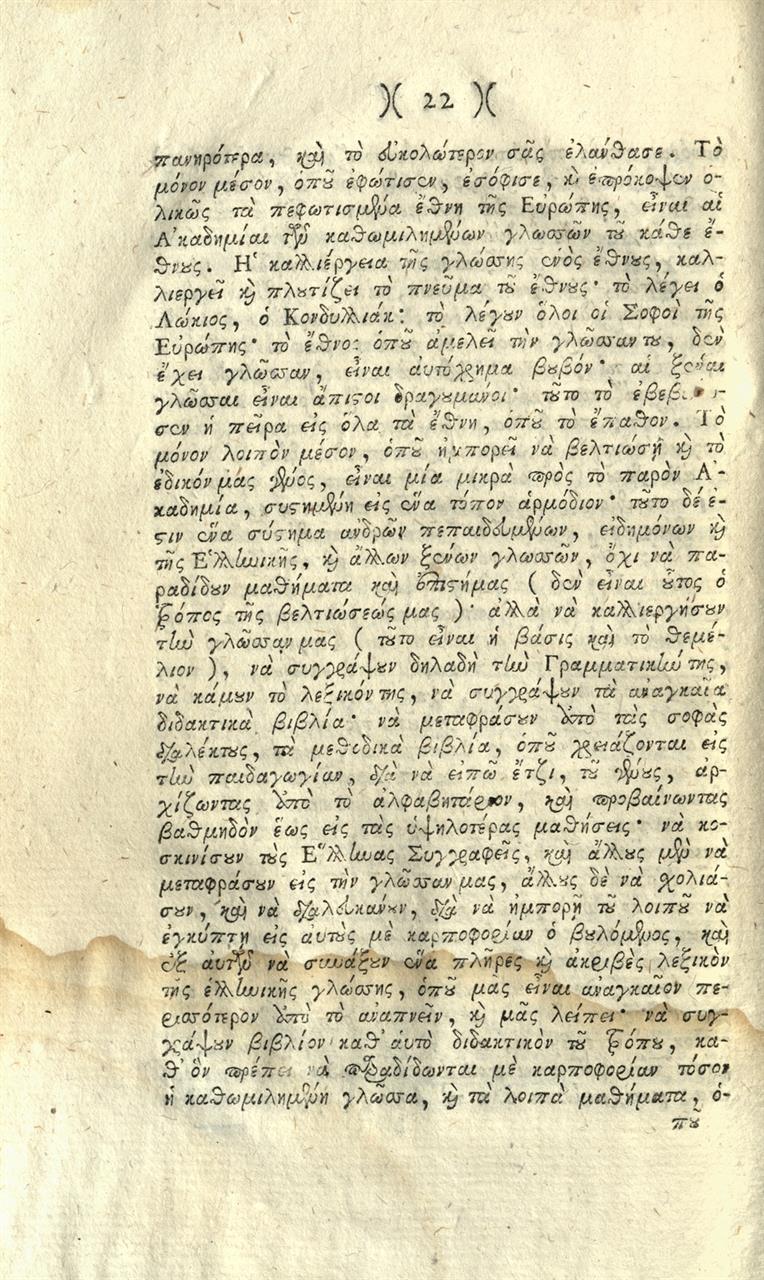 )( 22 )(
πανηρότερα, καὶ τὸ εὐκολώτερον σᾶς ἐλάνθασε. Τὸ
μόνον μέσον, ὁποῦ ἐφώτισεν, ἐσόφισε, κὶ ἐπρόκοψεν ὁ-
λικῶς τὰ πεφωτισμένα ἔθνη τῆς Εὐρώπης, εἶναι αἱ
Ἀκαδημίαι τῶν καθωμιλημένων γλωσσῶν τοῦ κάθε ἔ-
θνους. Ἡ καλλιέργεια τῆς γλώσσης ἑνὸς ἔθνους, καλ-
λιεργεῖ κὶ πλουτίζει τὸ πνεῦμα τοῦ ἔθνους· τὸ λέγει ὁ
Λώκιος, ὁ Κονδυλλιάκ: τὸ λέγουν ὅλοι οἱ Σοφοὶ τῆς
Εὐρώπης· τὸ ἔθνος ὁποῦ ἀμελεῖ τὴν γλῶσσαν του, δὲν
ἔχει γλῶσσαν, εἶναι αὐτόχρημα βουβόν· αἱ ξέναι
γλῶσσαι εἶναι ἄπιστοι δραγουμάνοι· τοῦτο τὸ
σεν ἡ πεῖρα εἰς ὅλα τὰ ἔθνη, ὁποῦ τὸ ἔπαθον. Τὸ
μόνον λοιπὸν μέσον, ὁποῦ ἠμπορεῖ νὰ βελτιώσῃ κὶ τὸ
ἐδικόν μας γένος, εἶναι μία μικρὰ πρὸς τὸ παρὸν Ἀ-
καδημία, συστημένη εἰς ἕνα τόπον ἁρμόδιον· τοῦτο δέ ἐ-
στιν ἕνα σύστημα ἀνδρῶν πεπαιδευμένων, εἰδημόνων κὶ
τῆς Ἑλληνικῆς, κὶ ἄλλων ξένων γλωσσῶν, ὄχι νὰ πα-
ραδίδουν μαθήματα καὶ ἐπιστήμας (δὲν εἶναι οὗτος ὁ
τρόπος τῆς βελτιώσεώς μας)· ἀλλὰ νὰ καλλιεργήσουν
τὴν γλῶσσαν μας (τοῦτο εἶναι ἡ βάσις καὶ τὸ θεμέ-
λιον), νὰ συγγράψουν δηλαδὴ τὴν Γραμματικήν της,
νὰ κάμουν τὸ λεξικόν της, νὰ συγγράψουν τὰ ἀναγκαῖα
διδακτικὰ βιβλία· νὰ μεταφράσουν ἀπὸ τὰς σοφὰς
διαλέκτους, τὰ μεθοδικὰ βιβλία, ὁποῦ χρειάζονται εἰς
τὴν παιδαγωγίαν, διὰ νὰ εἰπῶ ἔτζι, τοῦ γένους, ἀρ-
χίζωντας ἀπὸ τὸ ἀλφαβητάριον, καὶ προβαίνωντας
βαθμηδὸν ἕως εἰς τὰς ὑψηλοτέρας μαθήσεις· νὰ κο-
σκινίσουν τοὺς Ἕλληνας Συγγραφεῖς, καὶ ἄλλους μὲν νὰ
μεταφράσουν εἰς τὴν γλῶσσαν μας, ἄλλους δὲ νὰ χολιά-
σουν, καὶ νὰ διαλευκάνουν, διὰ νὰ ἠμπορῇ τοῦ λοιποῦ νὰ
ἐγκύπτῃ εἰς αὐτοὺς μὲ καρποφορίαν ὁ βουλόμενος, καὶ
ἐξ αὐτῶν νὰ συνάξουν ἕνα πλῆρες κὶ ἀκριβὲς λεξικὸν
τῆς ἑλληνικῆς γλώσσης, ὁποῦ μᾶς εἶναι ἀναγκαῖον πε-
ρισσότερον ἀπὸ τὸ ἀναπνεῖν, κὶ μᾶς λείπει· νὰ συγ-
γράψουν βιβλίον καθ' ἁυτὸ διδακτικὸν τοῦ τρόπου, κα-
θ' ὃν πρέπει νὰ παραδίδωνται μὲ καρποφορίαν τόσον
ἡ καθωμιλημένη γλῶσσα, κὶ τὰ λοιπὰ μαθήματα, ὁ-
ποῦ